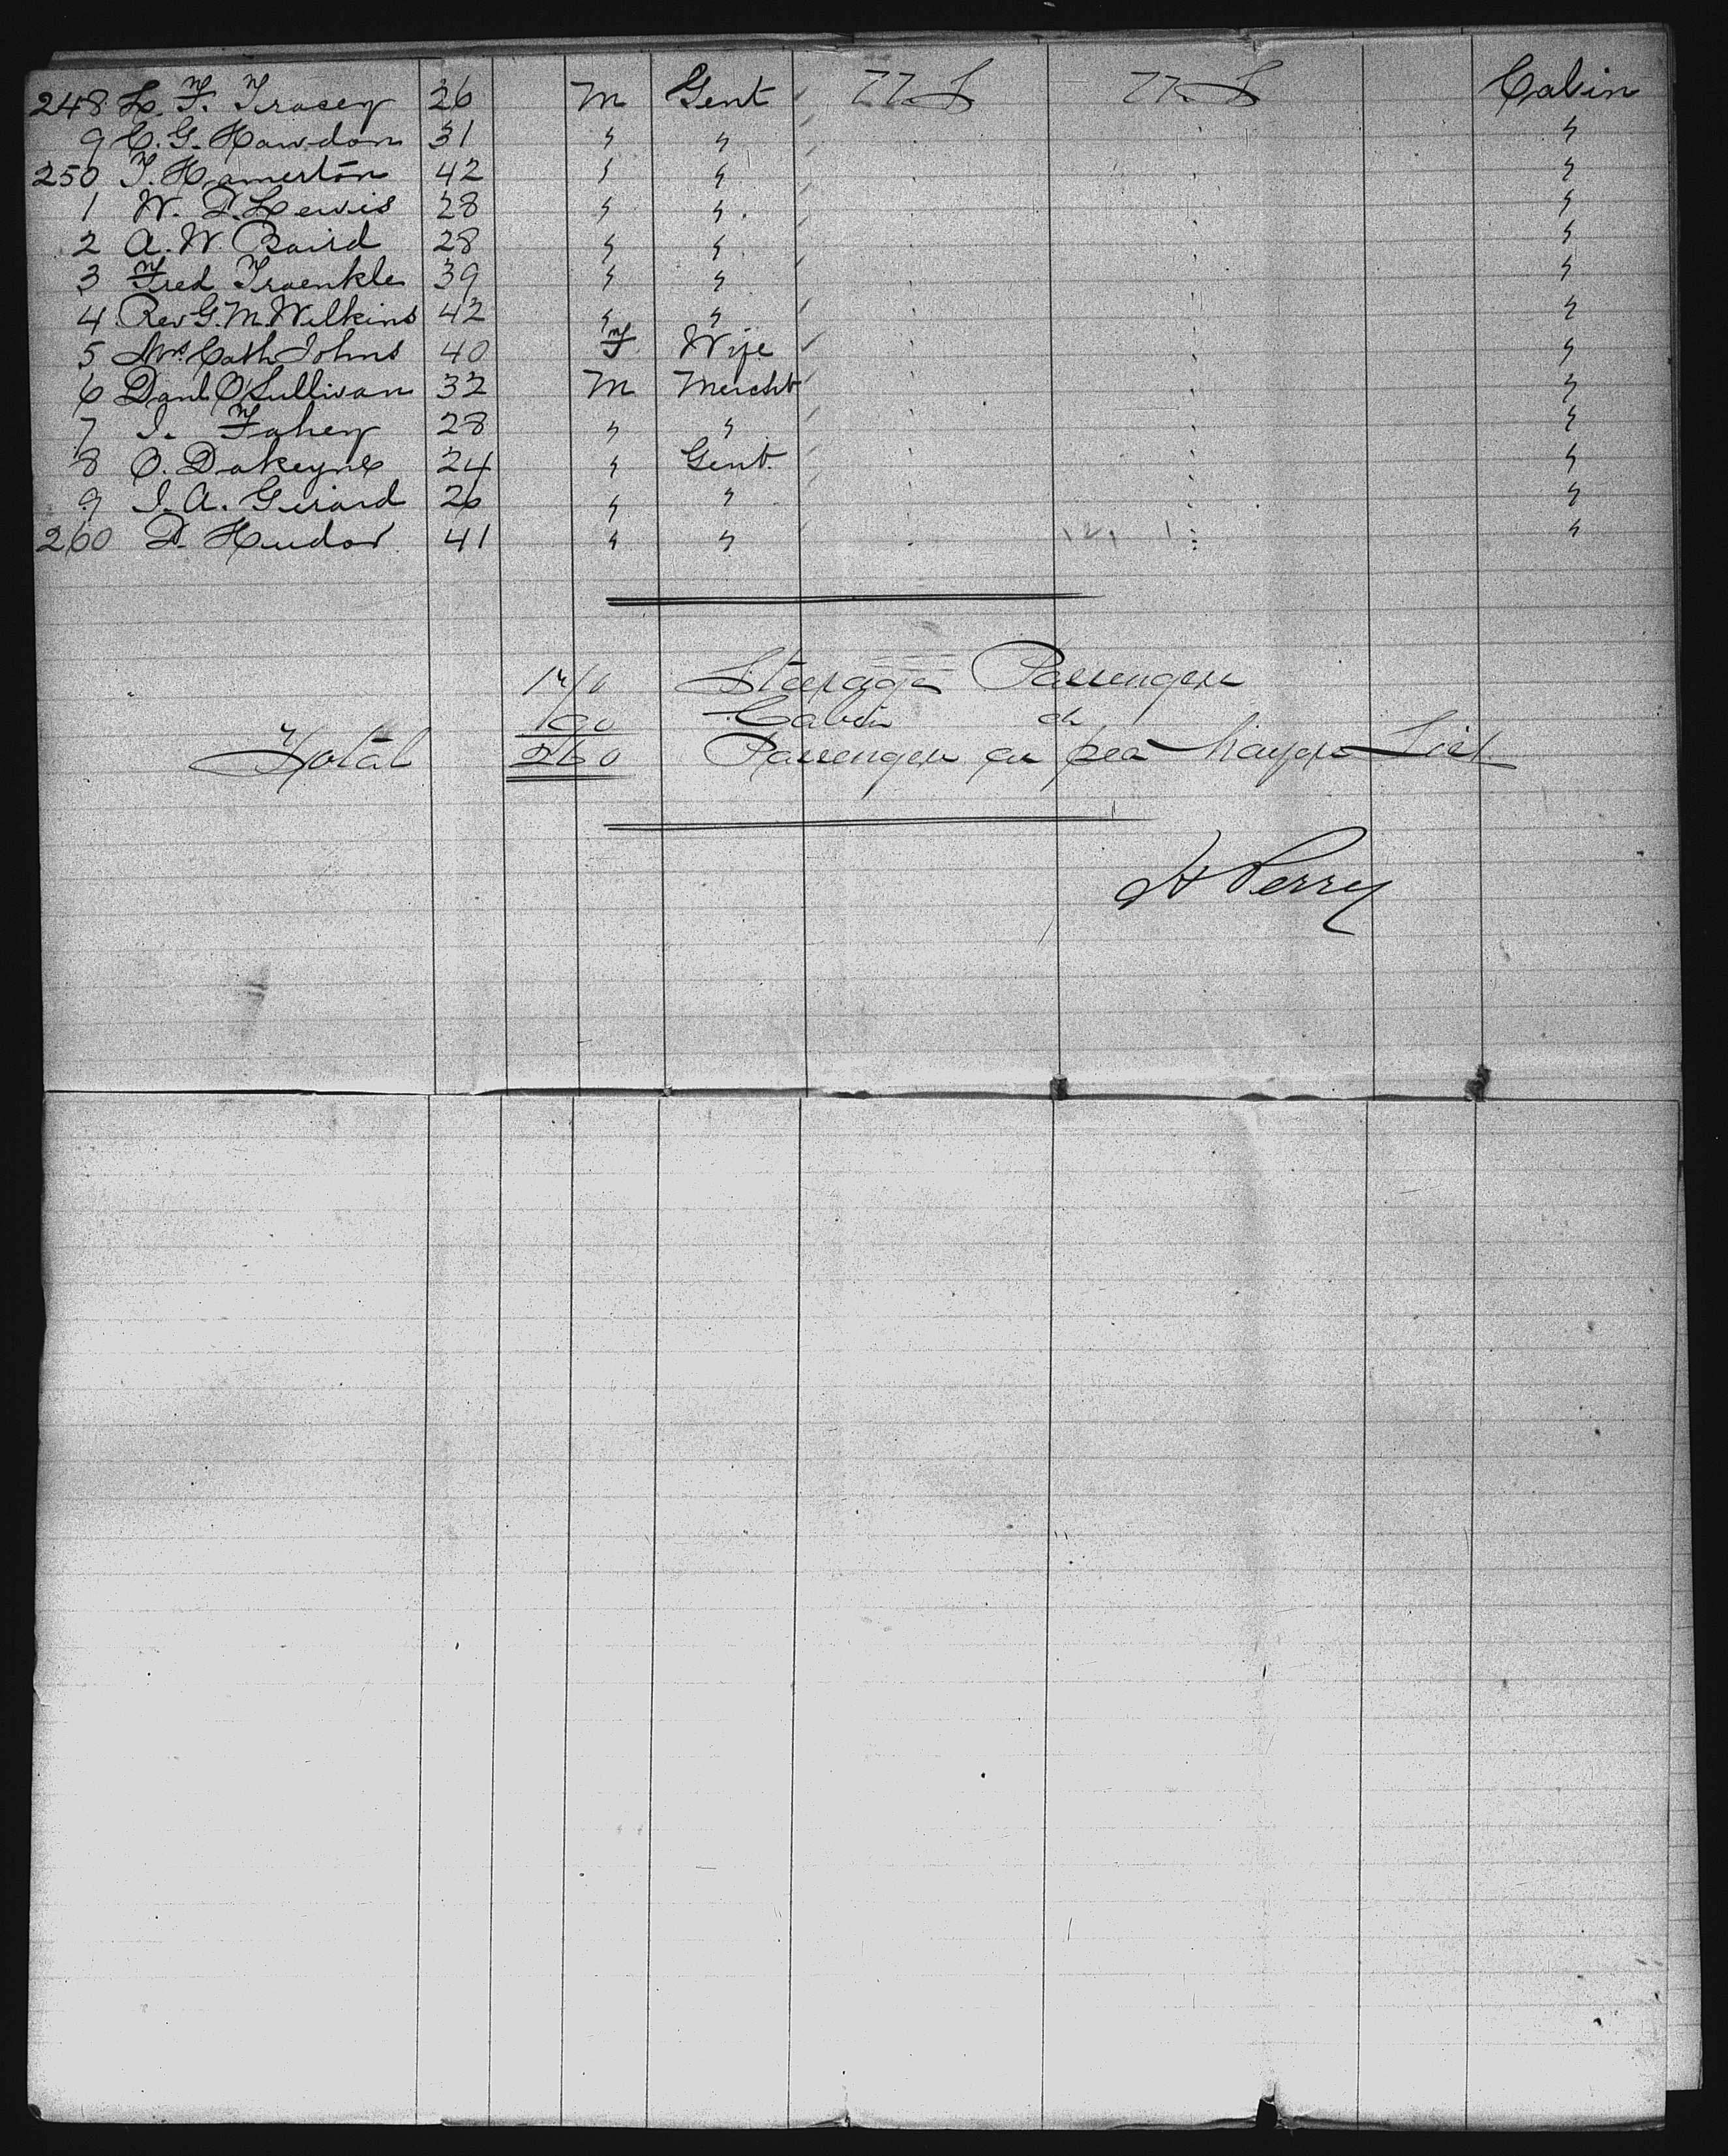 248 L. F. Tracey 26 M Gent U.S U.S Cabin
9 C. G. Hawdon 31 " " "
250 T. Hamerton 42 " " "
1 W. D. Lewis 28 " " "
2 A. W. Baird 28 " " "
3 Fred Traenkle 39 " " "
4 Rev G. M. Wilkins 42 " " "
5 Mrs Cath Johns 40 F Wife "
6 Danl O'Sullivan 32 M Mercht "
7 J. Fahey 28 " " "
8 O. Dakeyne 24 " Gent. "
9 J. A. Gerard 26 " " "
260 D. 41 " " "
Steerage Passengers
Cabin do
Total 260 Passengers as per List
H Perry